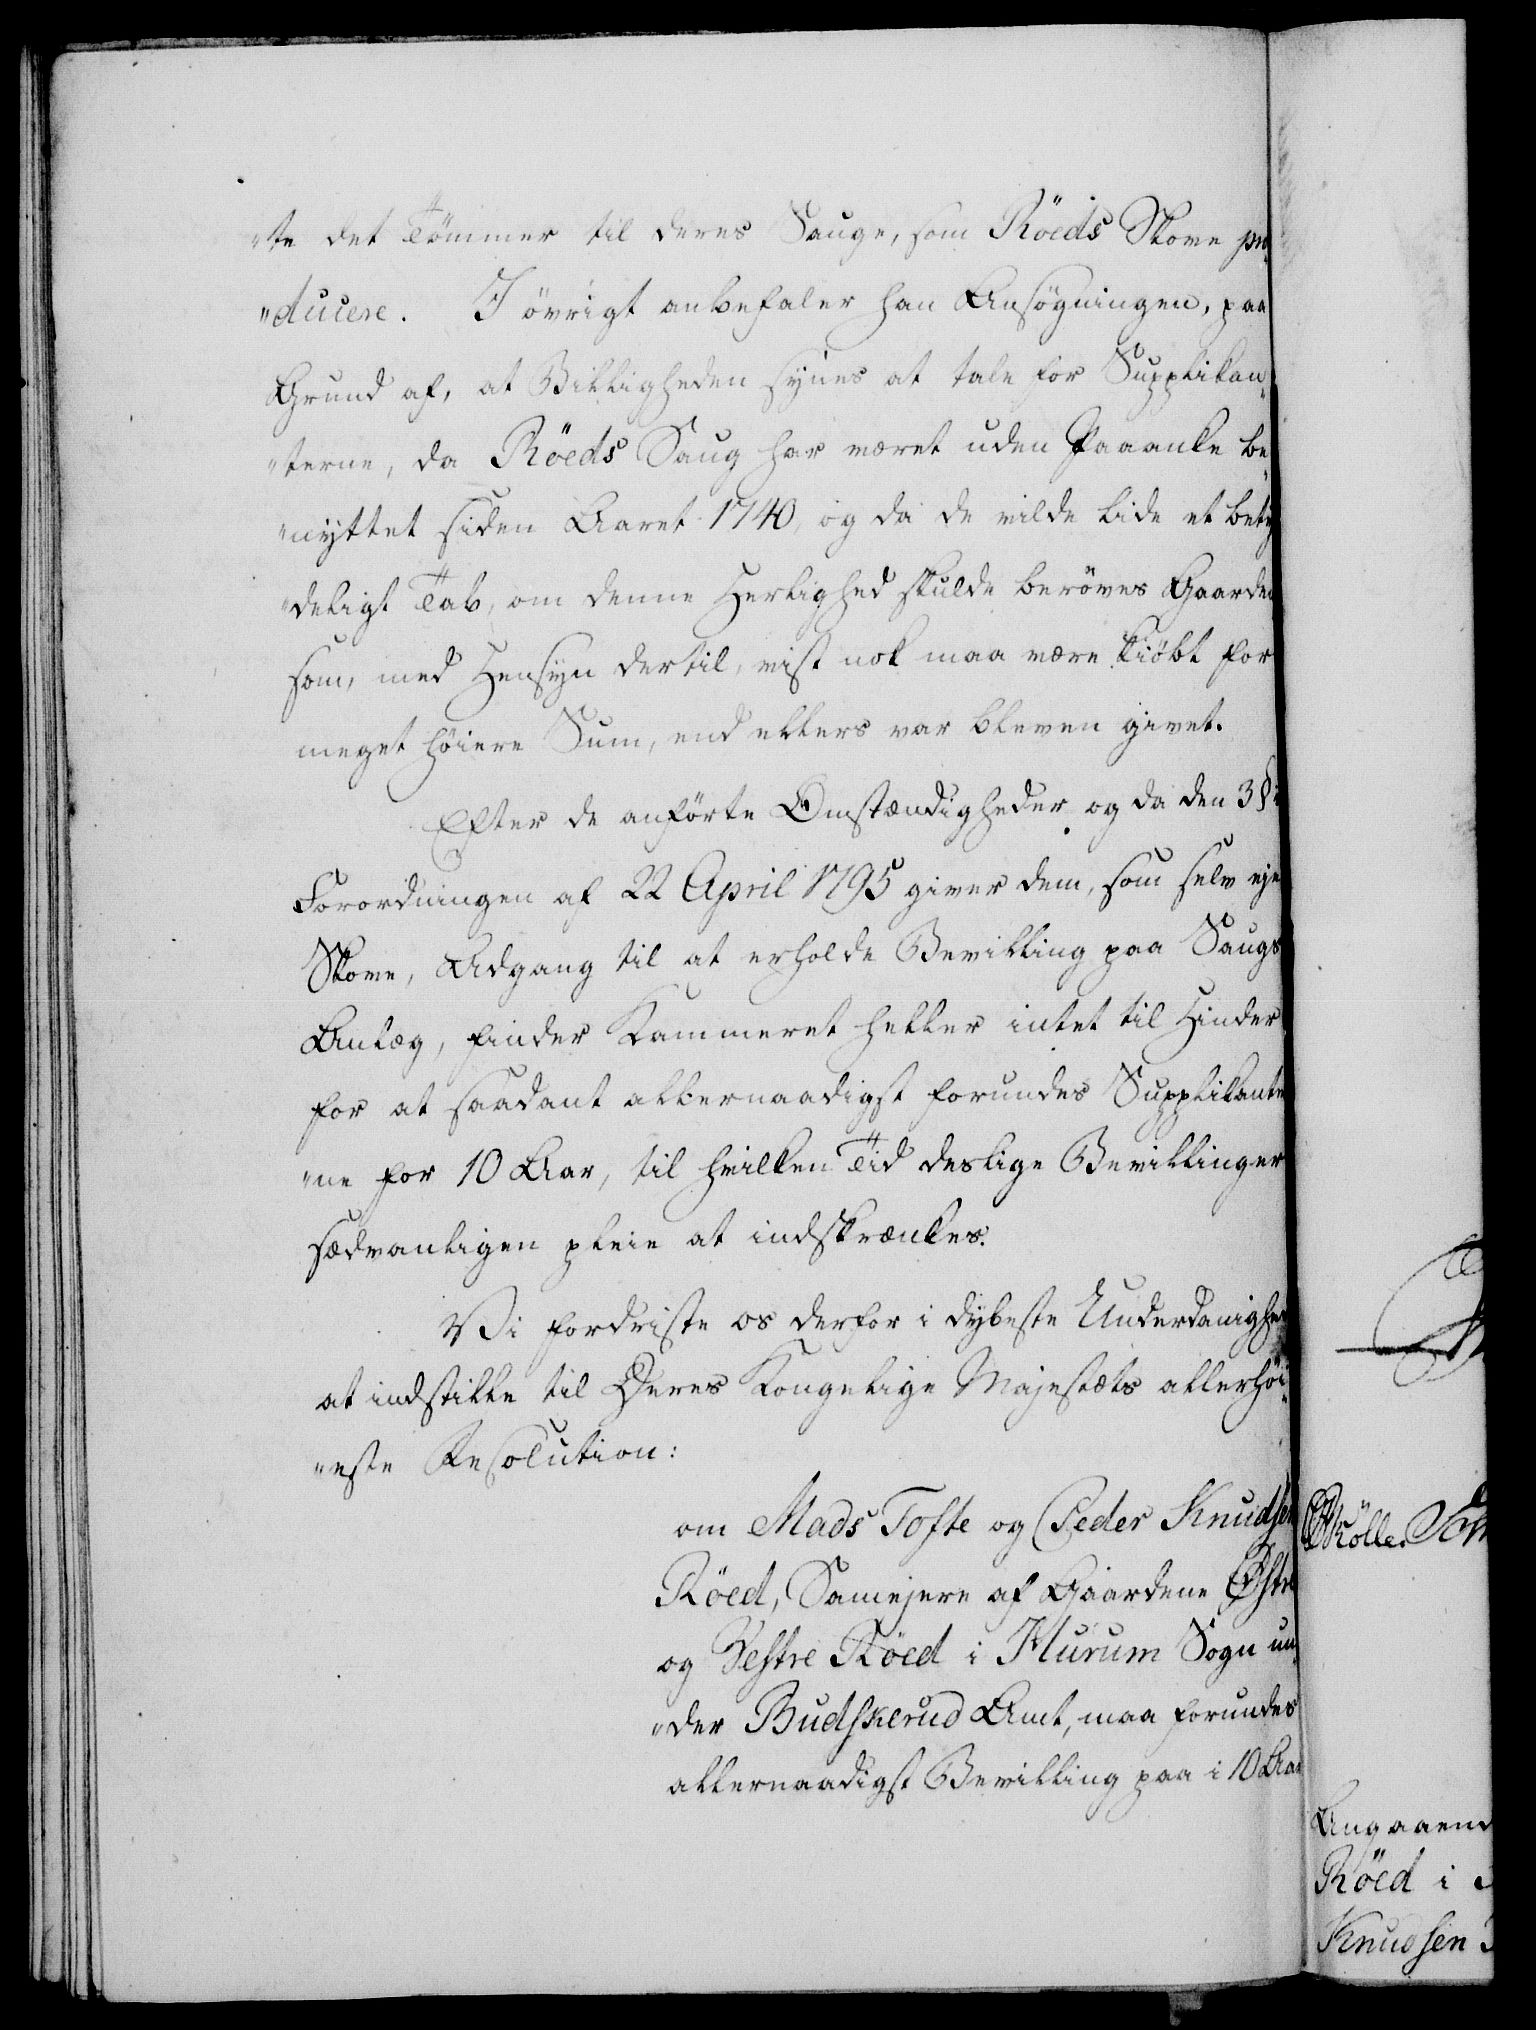 "te det Tömmer til deres Sauge, som Röeds Skove pro„
"ducere. I övrigt anbefaler han Ansögningen, paa
Grund af, at Billigheden synes at tale for Supplikan„
"terne, da Röeds Saug har været uden Paaanke be„
"nyttet siden Aaret 1740, og da de vilde lide et bety
"deligt Tab, om denne Herlighed skulde beröves Gaarden
som, med Hensyn dertil, vist nok maa være kiöbt for
meget höiere Sum, end ellers var bleven givet.
Efter de anförte Omstændigheder og da den 3 § i
Forordningen af 22 April 1795 giver dem, som selv eje
Skove, Adgang til at erholde Bevilling paa Saugs
Anlæg, finder Kammeret heller intet til Hinder
for at saadant allernaadigst forundes Supplikante
"ne for 10 Aar, til hvilken Tid deslige Bevillinger
sædvanligen pleie at indskrænkes.
Vi fordriste os derfor i dybeste Underdanighed
at indstille til Deres Kongelige Majestæts allerhöi„
"este Resolution:
om Mads Tofte og Peder Knudsen
Röed, Samejere af Gaardene Østre
og Vestre Röed i Hurum Sogn un„
"der Budskerud Amt, maa forundes
allernaadigst Bevilling paa i 10 Aar
Angaaend
Röed i
Knudsen